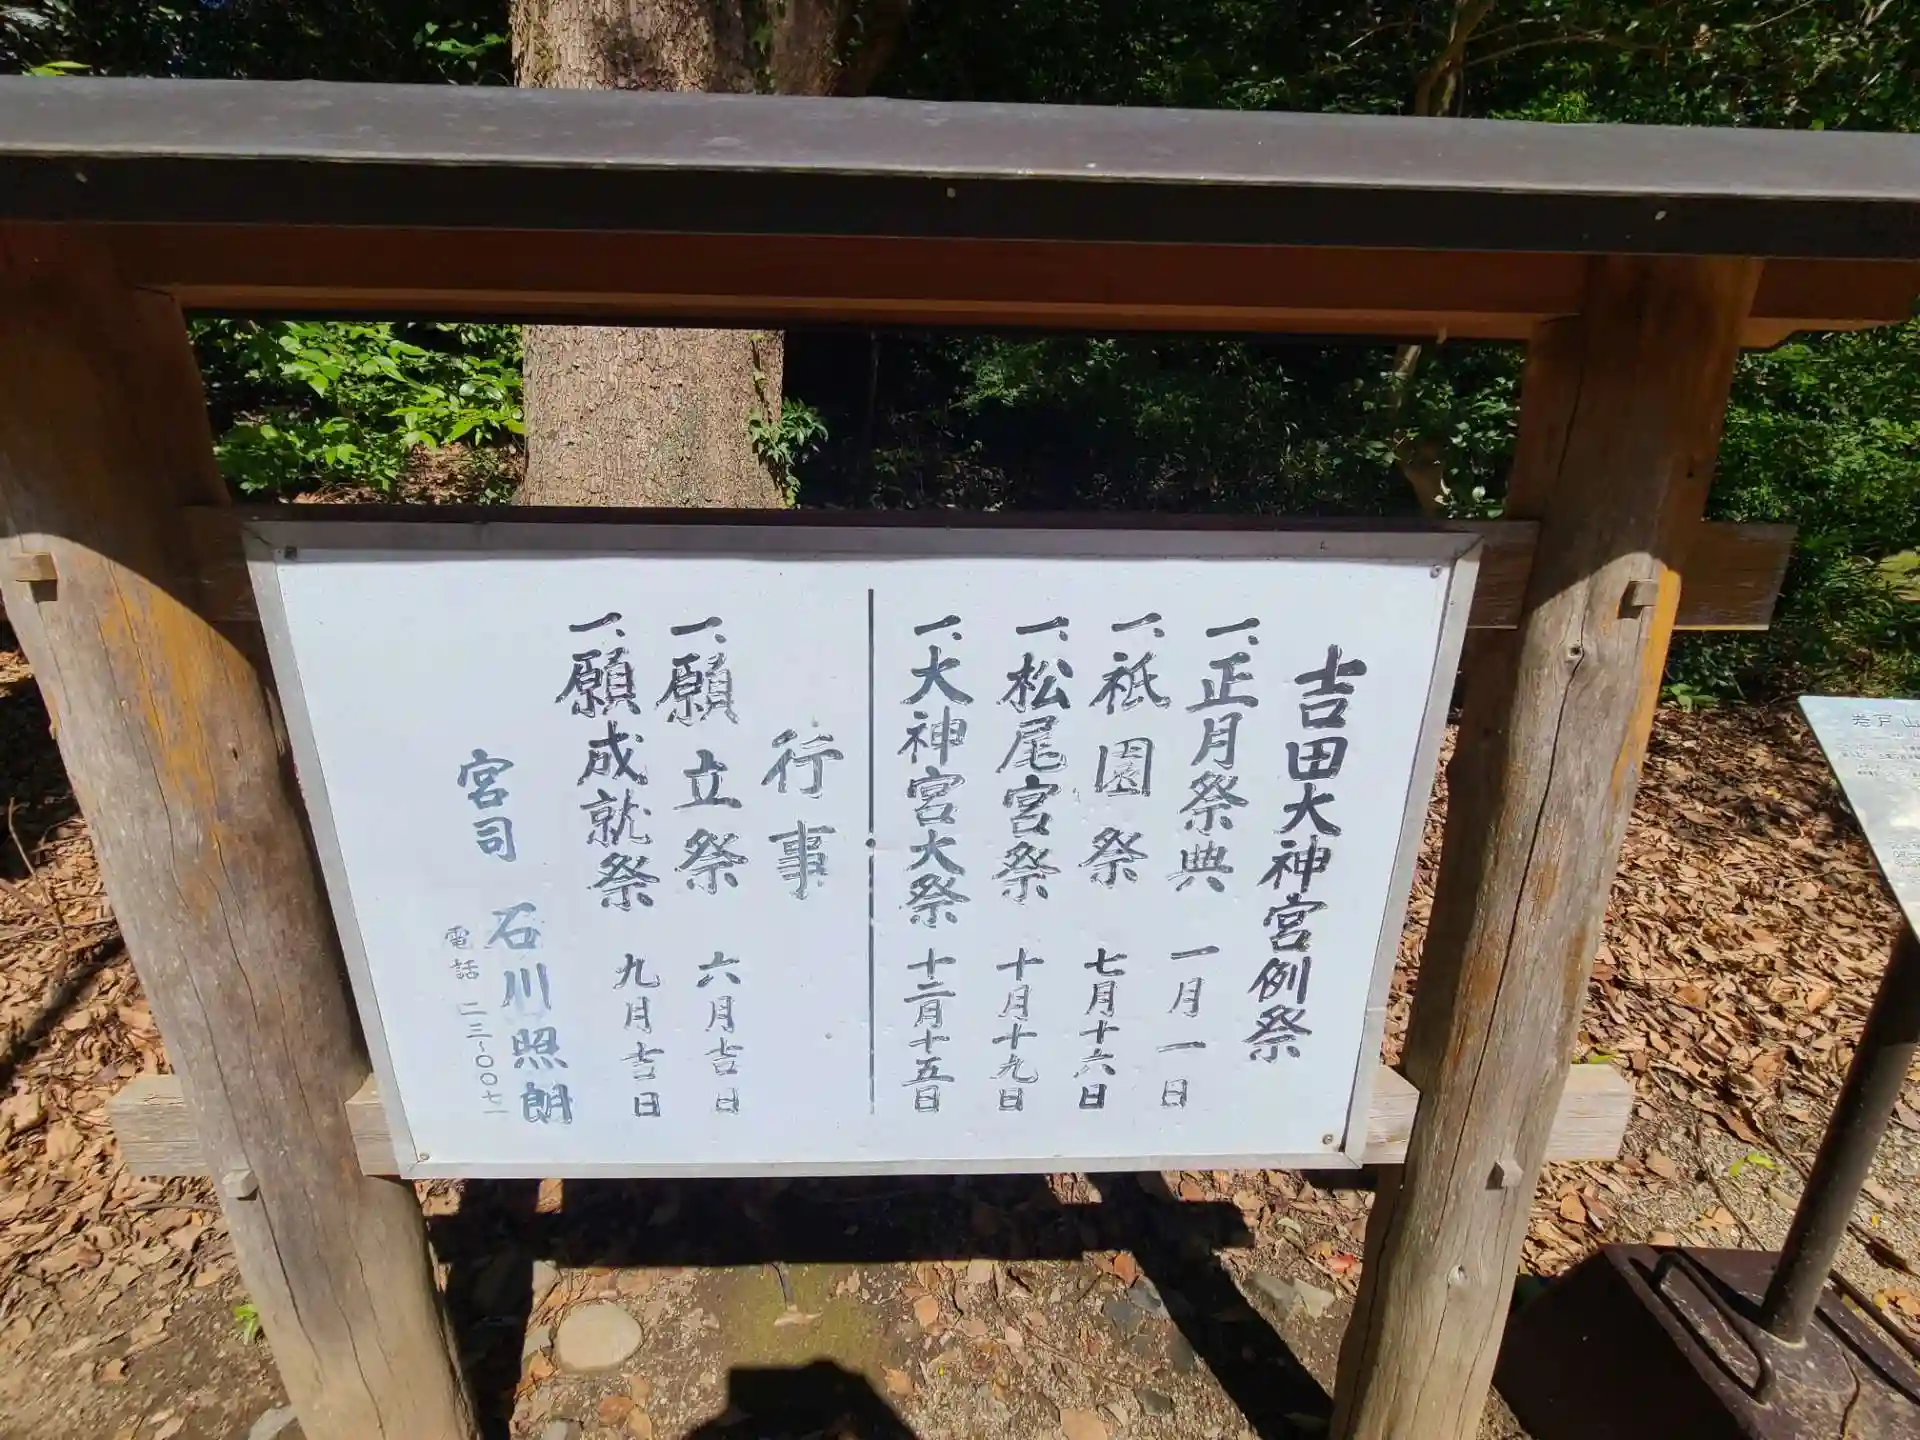 吉田大神宮例祭
一、正月祭典 一月一日
一、祗園祭 七月十六日
一、松尾宮祭 十月十九日
一、大神宮大祭 十二月十五日
行事
一、願立祭 六月吉日
一、願成就祭 九月吉日
宮司 石川照朗
電話 二三-〇〇七一
岩戸山